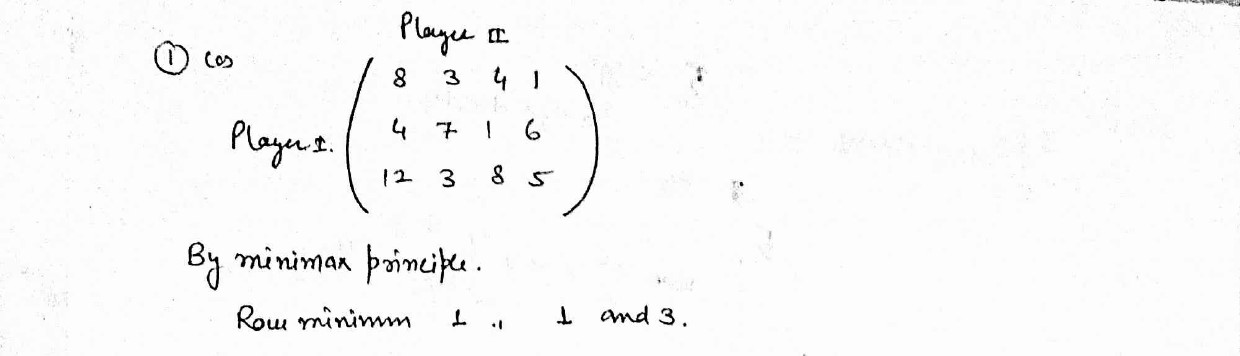 Player II
① cos
8 3 4 1
Player I. 4 7 1 6
12 3 8 5
By minimax principle.
Row minimum 1 , 1 and 3.